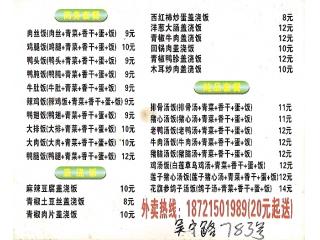 肉丝饭(肉丝+青菜+香干+蛋+饭) 9元
鸡腿饭(鸡腿+青菜+香干+蛋+饭) 10元
鸭头饭(鸭头+青菜+香干+蛋+饭) 9元
鸭肫饭(鸭肫+青菜+香干+蛋+饭) 9元
牛肚饭(牛肚+青菜+香干+蛋+饭) 9元
辣鸡饭(辣鸡饭+青菜+香干+蛋+饭) 9元
鸭翅饭(鸭翅+青菜+香干+蛋+饭) 9元
大排饭(大排+青菜+香干+蛋+饭) 10元
大肉饭(大肉+青菜+香干+蛋+饭) 10元
鸭腿饭(鸭腿+青菜+香干+蛋+饭) 12元
麻辣豆腐盖浇饭 10元
青椒土豆丝盖浇饭 8元
青椒肉片盖浇饭 10元
西红柿炒蛋盖浇饭 8元
洋葱大肠盖浇饭 12元
青椒牛肉盖浇饭 12元
回锅肉盖浇饭 10元
青椒鸭胗盖浇饭 12元
木耳炒肉盖浇饭 10元
排骨汤饭(排骨汤+青菜+香干+蛋+饭) 11元
猪心汤饭(猪心汤+青菜+香干+蛋+饭) 11元
老鸭汤饭(老鸭汤+青菜+香干+蛋+饭) 12元
牛肉汤饭(牛肉汤+青菜+香干+蛋+饭) 12元
猪脑汤饭(猪脑汤+青菜+香干+蛋+饭) 12元
鸡汤饭(白莲草鸟鸡汤+青菜+香干+蛋+饭) 12元
莲子猪心汤饭(莲子猪心汤+青菜+香干+蛋+饭) 12元
花旗参鸽子汤饭(鸽子汤+青菜+香干+蛋+饭) 14元
外卖热线：18721501989(20元起送)
783号